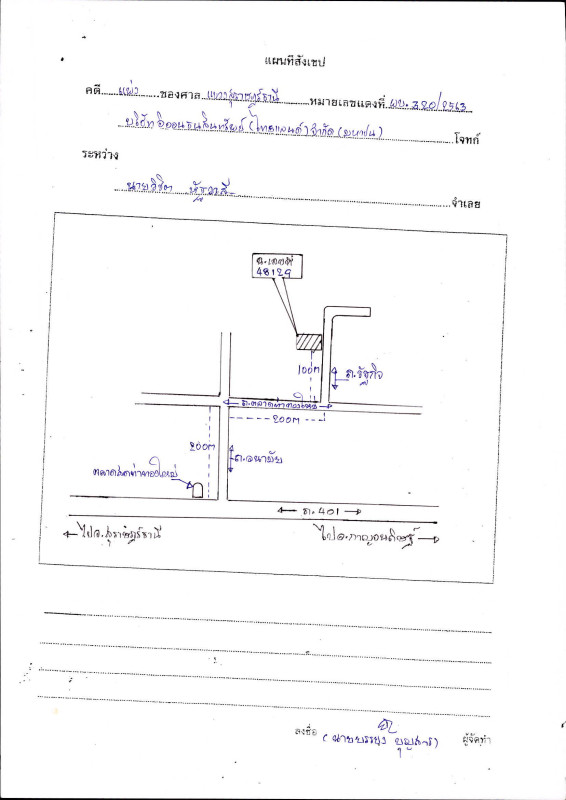 แผนที่สังเขป
คดี แพ่ง ของศาล แขวงสุราษฎร์ธานี หมายเลขแดงที่ ผบ. 320/2563
บริษัท อิออน ธนสินทรัพย์ (ไทยแลนด์) จำกัด (มหาชน) โจทก์
ระหว่าง
นายวิชิต จำเลย
ฉ.เลขที่
48129
100m
ถ.รัฐกิจ
ถ.ตลาดท่าทองใหม่
200m
200m
ถ.อนามัย
ตลาดสดท่าทองใหม่
ถ.401
ไปจ.สุราษฎร์ธานี
ไปอ.กาญจนดิษฐ์
ลงชื่อ
(นายบรรยง บุญสาร์) ผู้จัดทำ